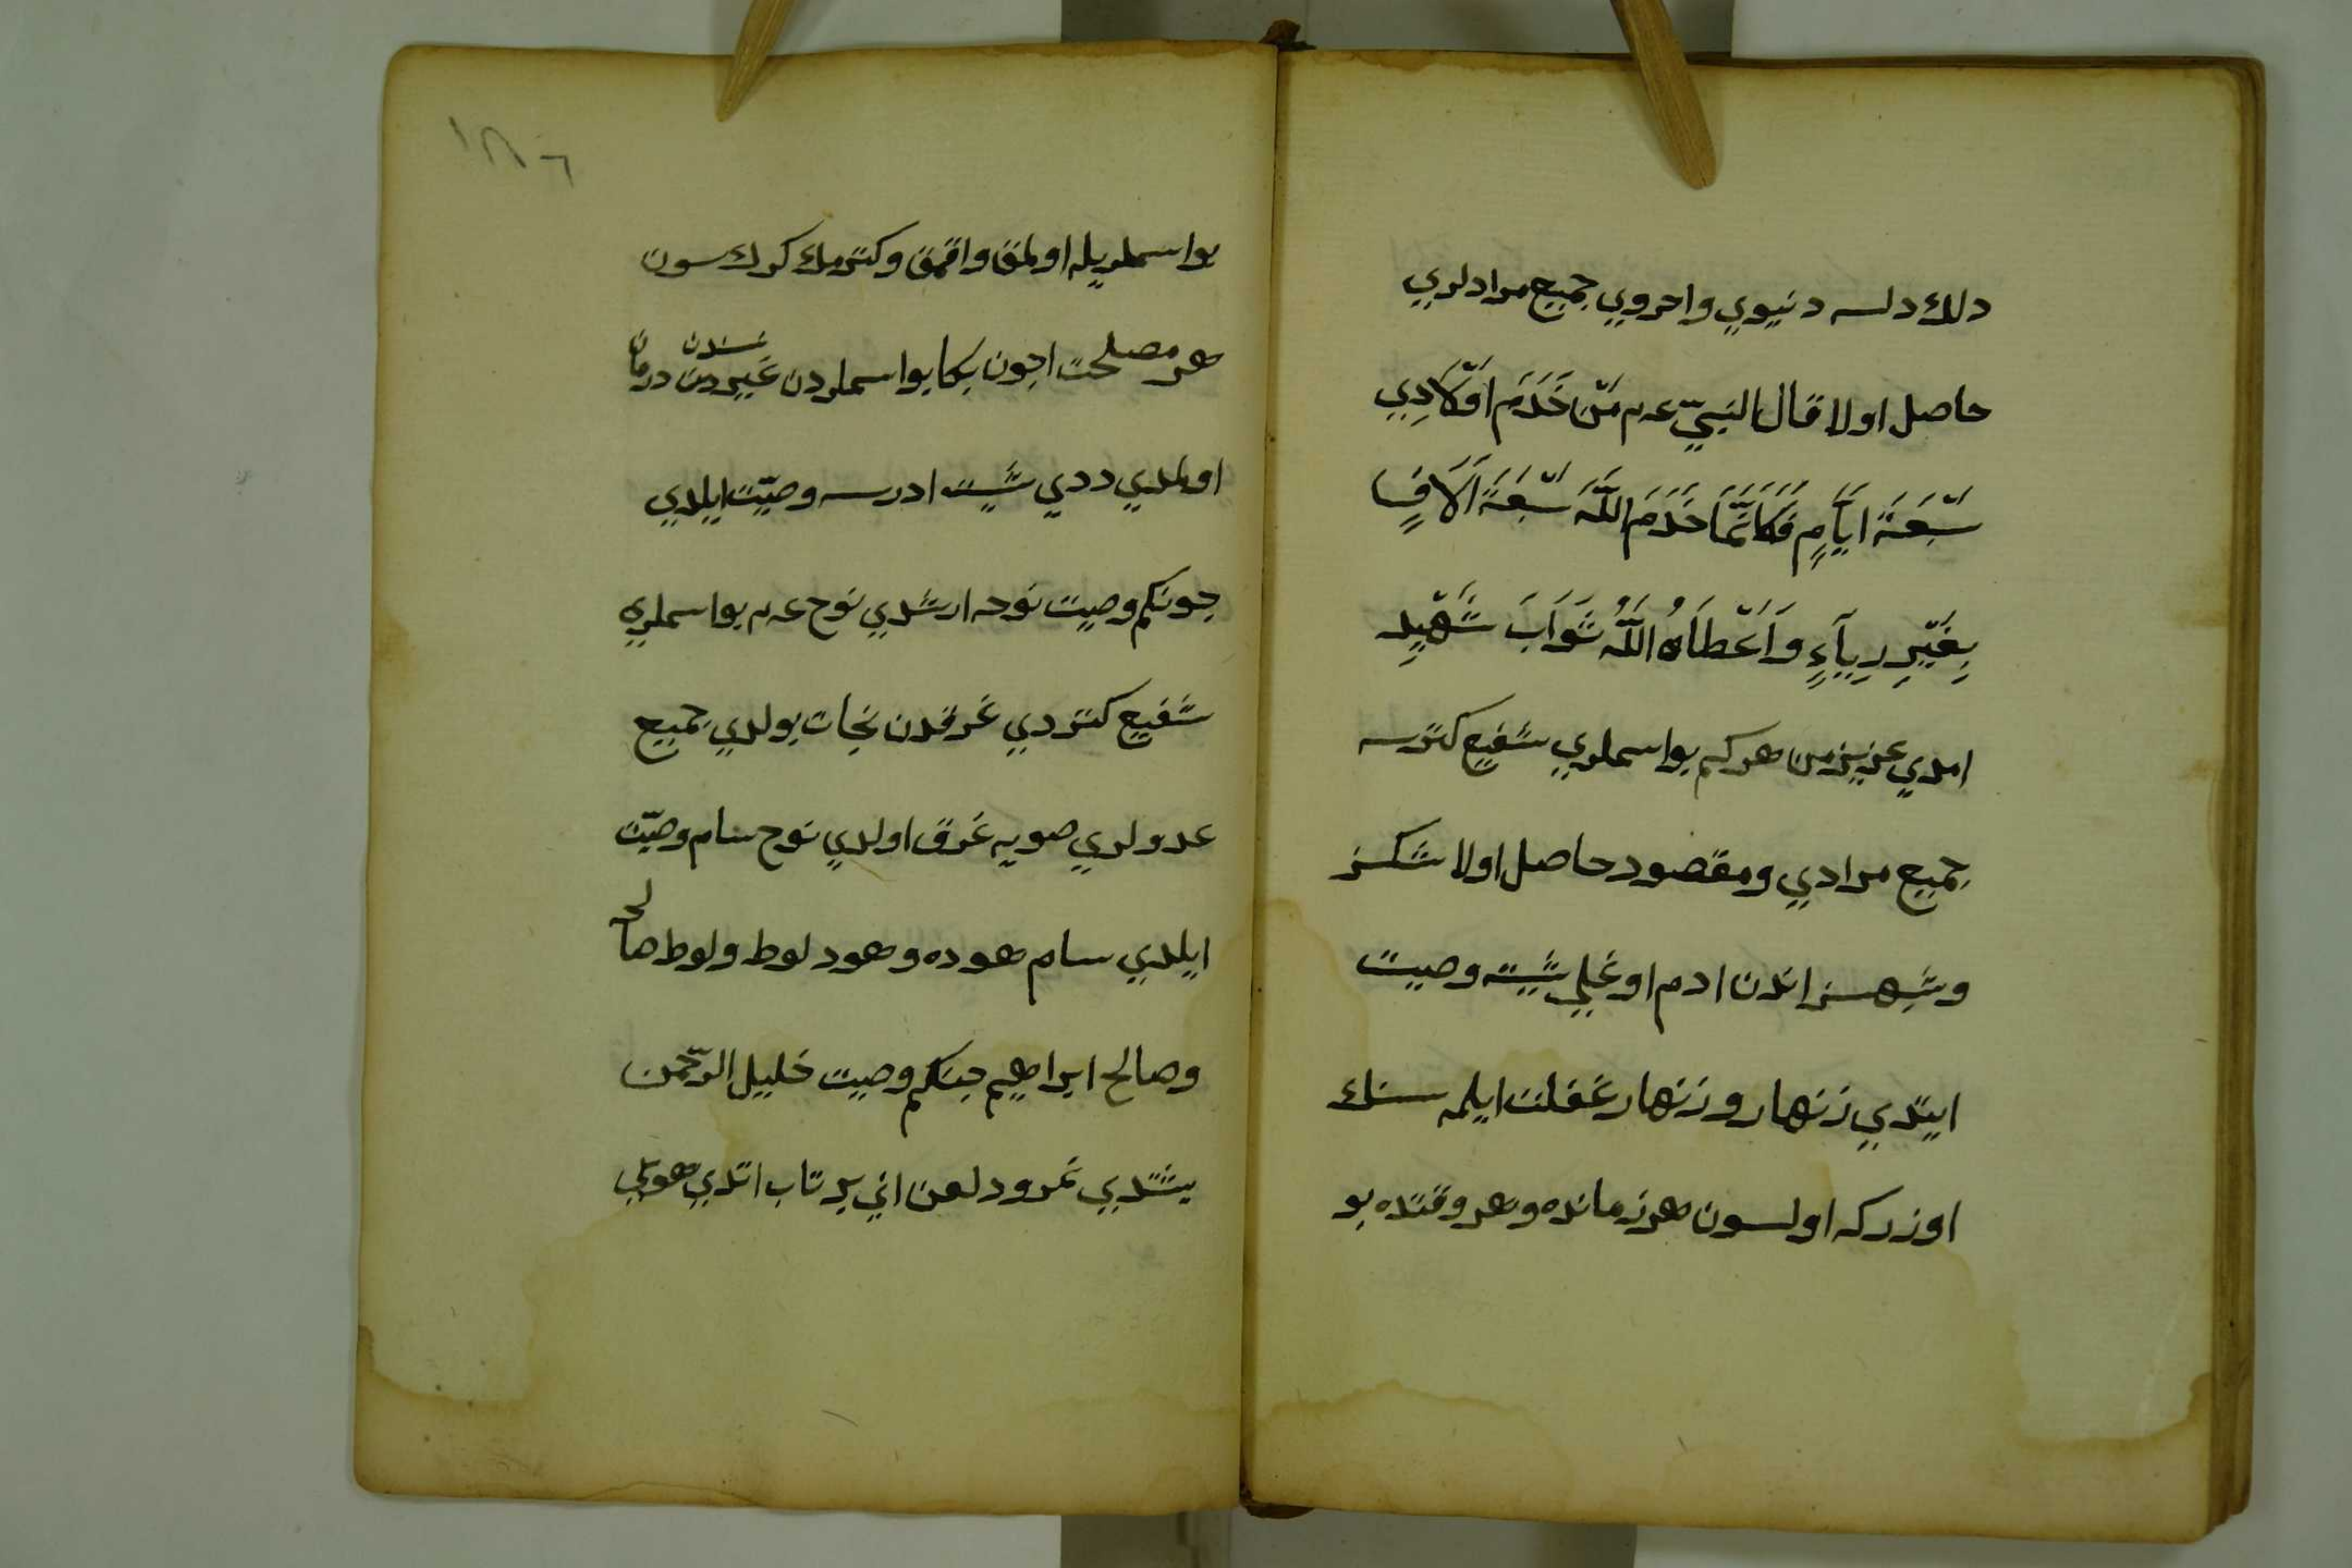 دلك دلسه دنيوي واخروي جميع مرادلري
حاصل اولا قال النبيّ عم مَنْ خَدَمَ اَوْلَادِي
سَبْعَةَ اَيَّامٍ فَكَاَنَّمَا خَدَمَ اللّٰهَ سَبْعَةَ اَلَافٍ
بِغَيْرِ رِيَآءٍ وَاَعْطَاهُ اللّٰهُ ثَوَابَ شَهْيِدِ
امدي عزيزمن هركم بواسملري شفيع كتورسه
جميع مرادي ومقصود حاصل اولا شكسز
وشبهسز اندن ادم اوغلي شيته وصيت
ايتدي زنهار وزنهار غفلت ايلمه سنك
اوزركه اولسون هر زمانده وهر وقتده بو
١٨٦
بواسملريله اولمق واقمق وكتورمك كرك سون
هر مصلحت اچون بكا بواسملردن غيردن نسندن درمان
اولمدي ددي شيت ادرسه وصيّت ايلدي
چونكم وصيت نوحه ارشدي نوح عم بواسملريه
شفيع كتوردي غرقدن نجات بولدي جميع
عدولري صويه غرق اولدي نوح سام وصيّت
ايلدي سام هوده وهود لوط ولوط صالح
وصالح ابراهيم چنكم وصيت خليل الرّحمن
يتشدي نمرود لعن اني پرتاب اتدي هوايي